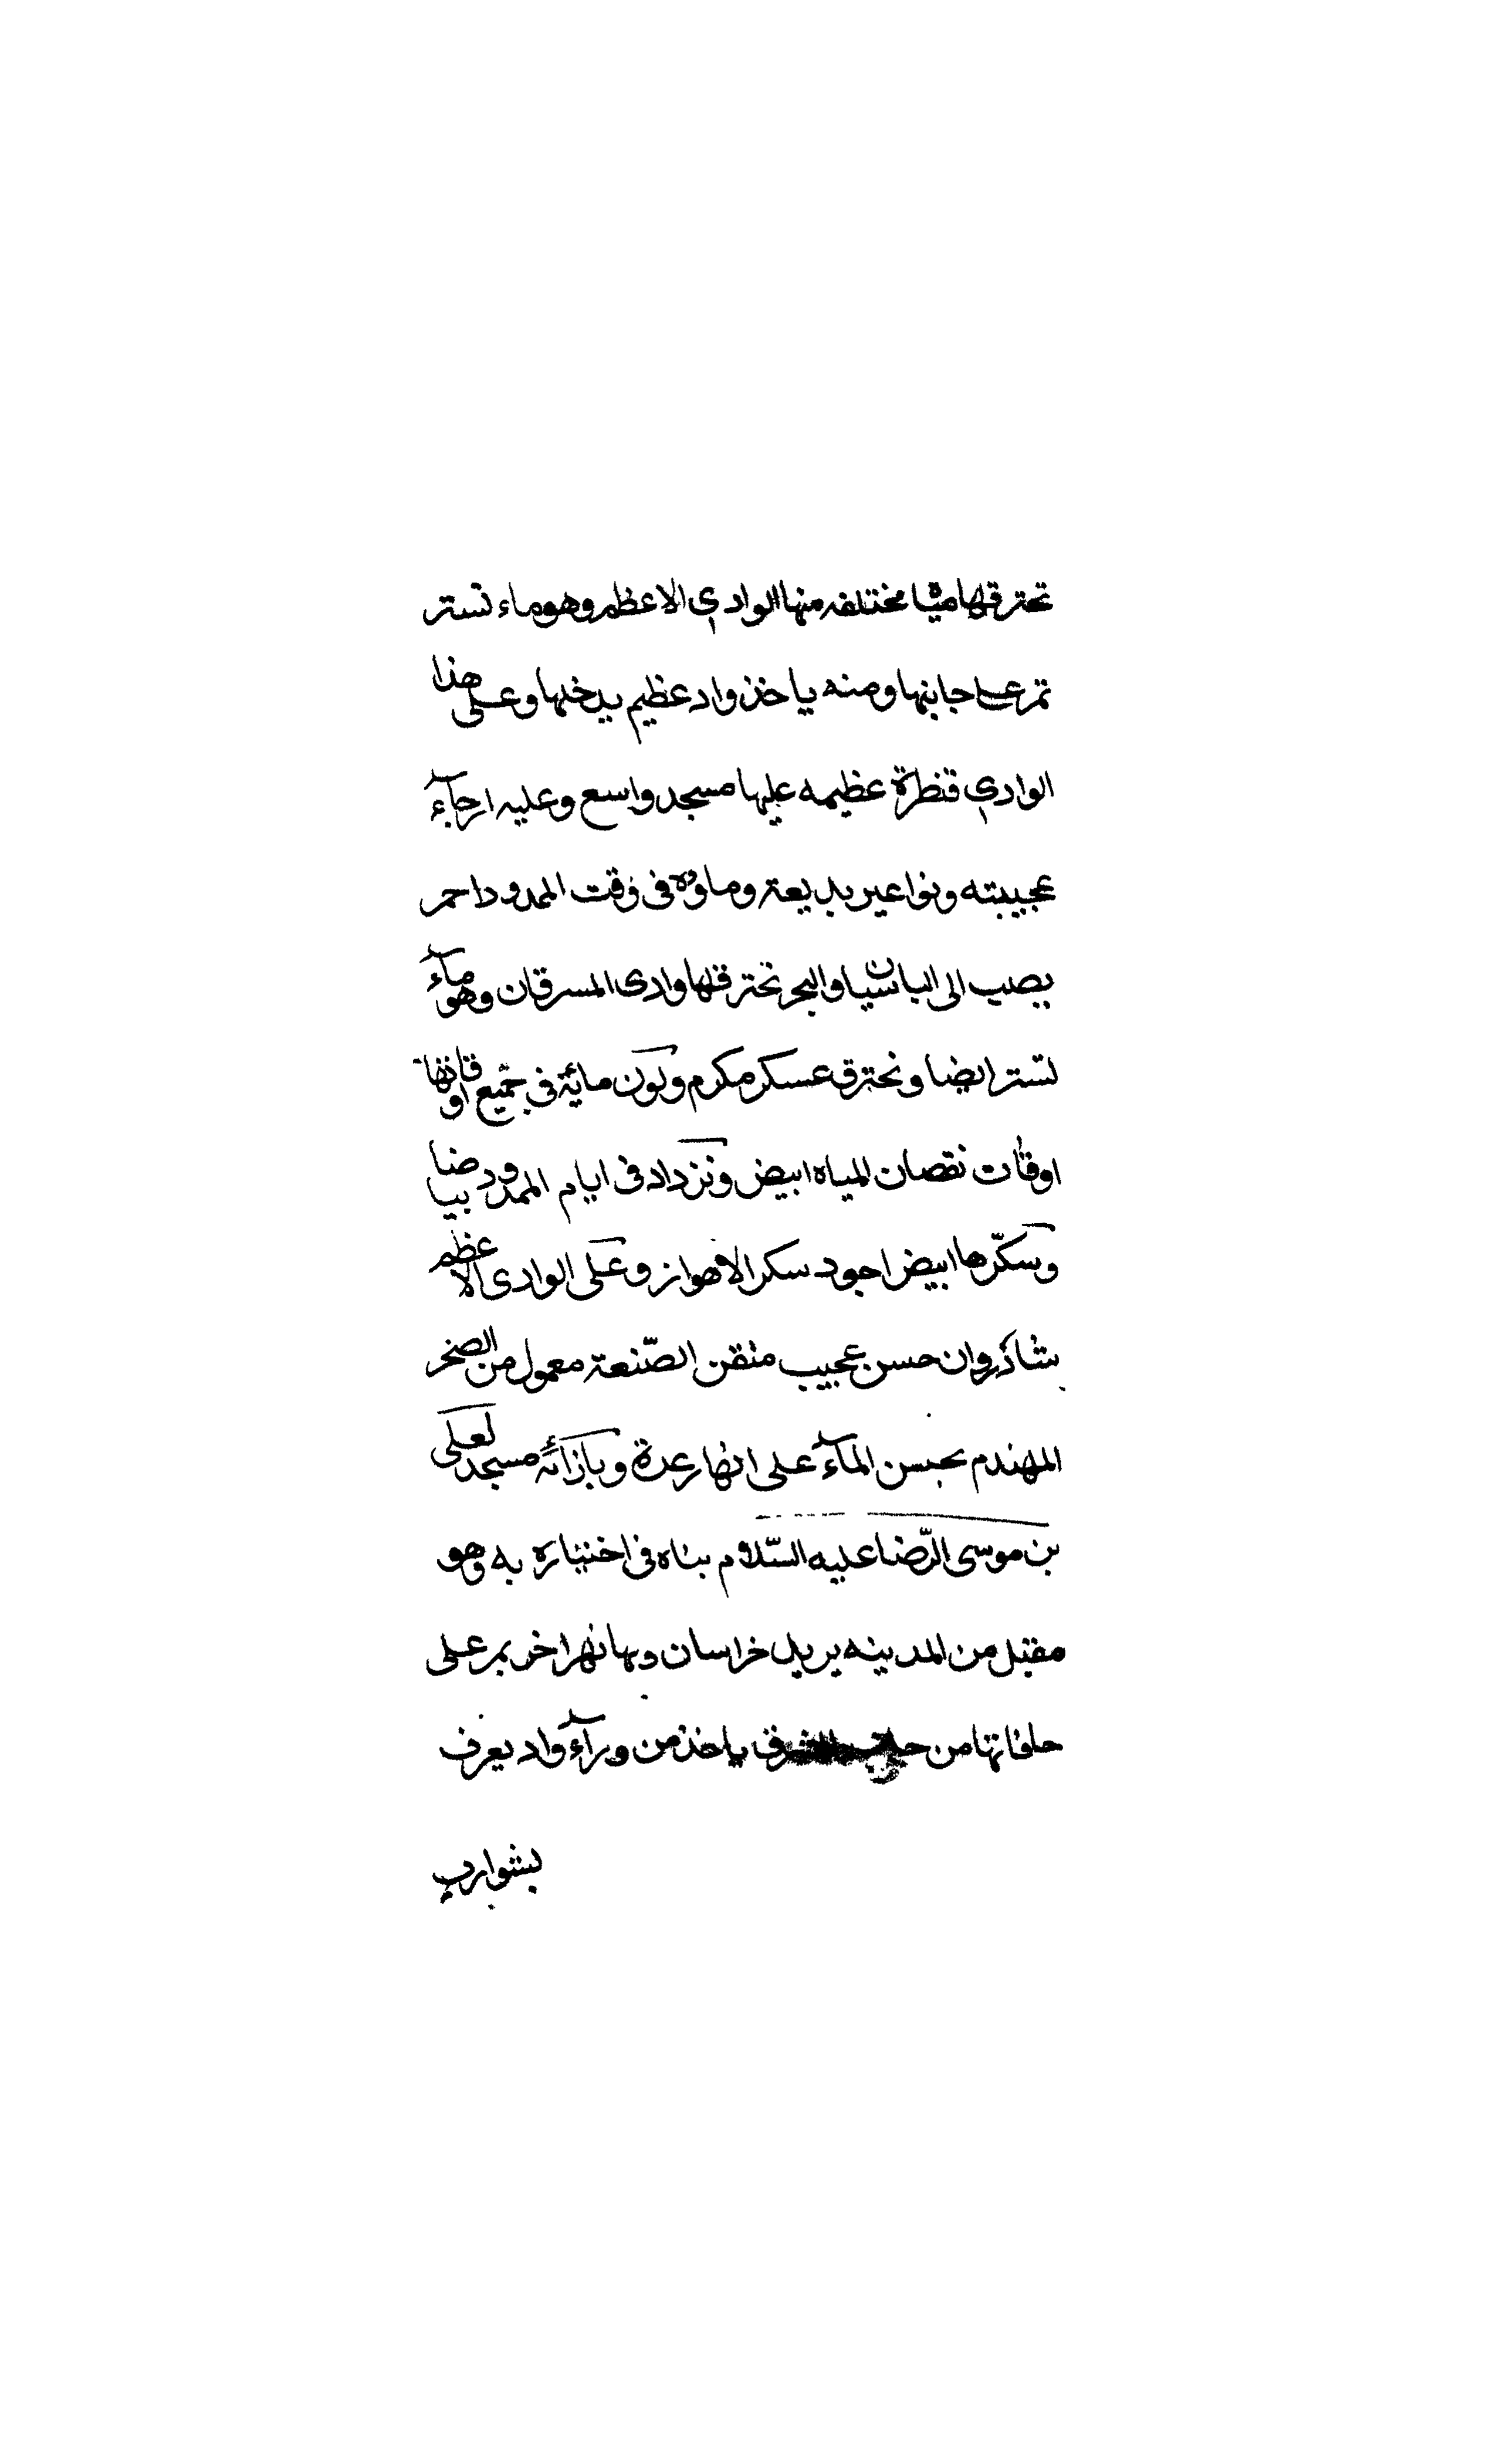 تخترقها مياه مختلفه منها الوادي الاعظم وهو ماء تستر
تمر على جابنها ومنه ياخذ واد عظيم يدخلها وعلى هذا
الوادي قنطرة عظيمه عليها مسجد واسع وعليه ارجآء
عجيبته ونواعير بديعة وماؤه فى وقت المدود احمر
يصب الى الباسيان والبحر تخترقها وادى المسرقان وهو مآء
تستر ايضا ونخترق عسكر مكرم ولون مائة فى جميع اوقاتها
اوقات نقصان المياه ابيض ونزداد فى ايام المدود بياضا
وسكّرها ابيض اجود سكر الاهواز وعلى الوادى الاعظم
شاذروان حسن عجيب متقن الصّنعة معمول من الصخر
المهندم يحبس المآء على انهار عدة وبازآئه مسجد لعلى
بن موسى الرّضا عليه السّلام بناه فى اختياره به وهو
مقبل من المدينه يريد خراسان وبها نهر اخر يمر على
حافاتها من الشرق ياخذ من ورآء واد يعرف
بشوارب